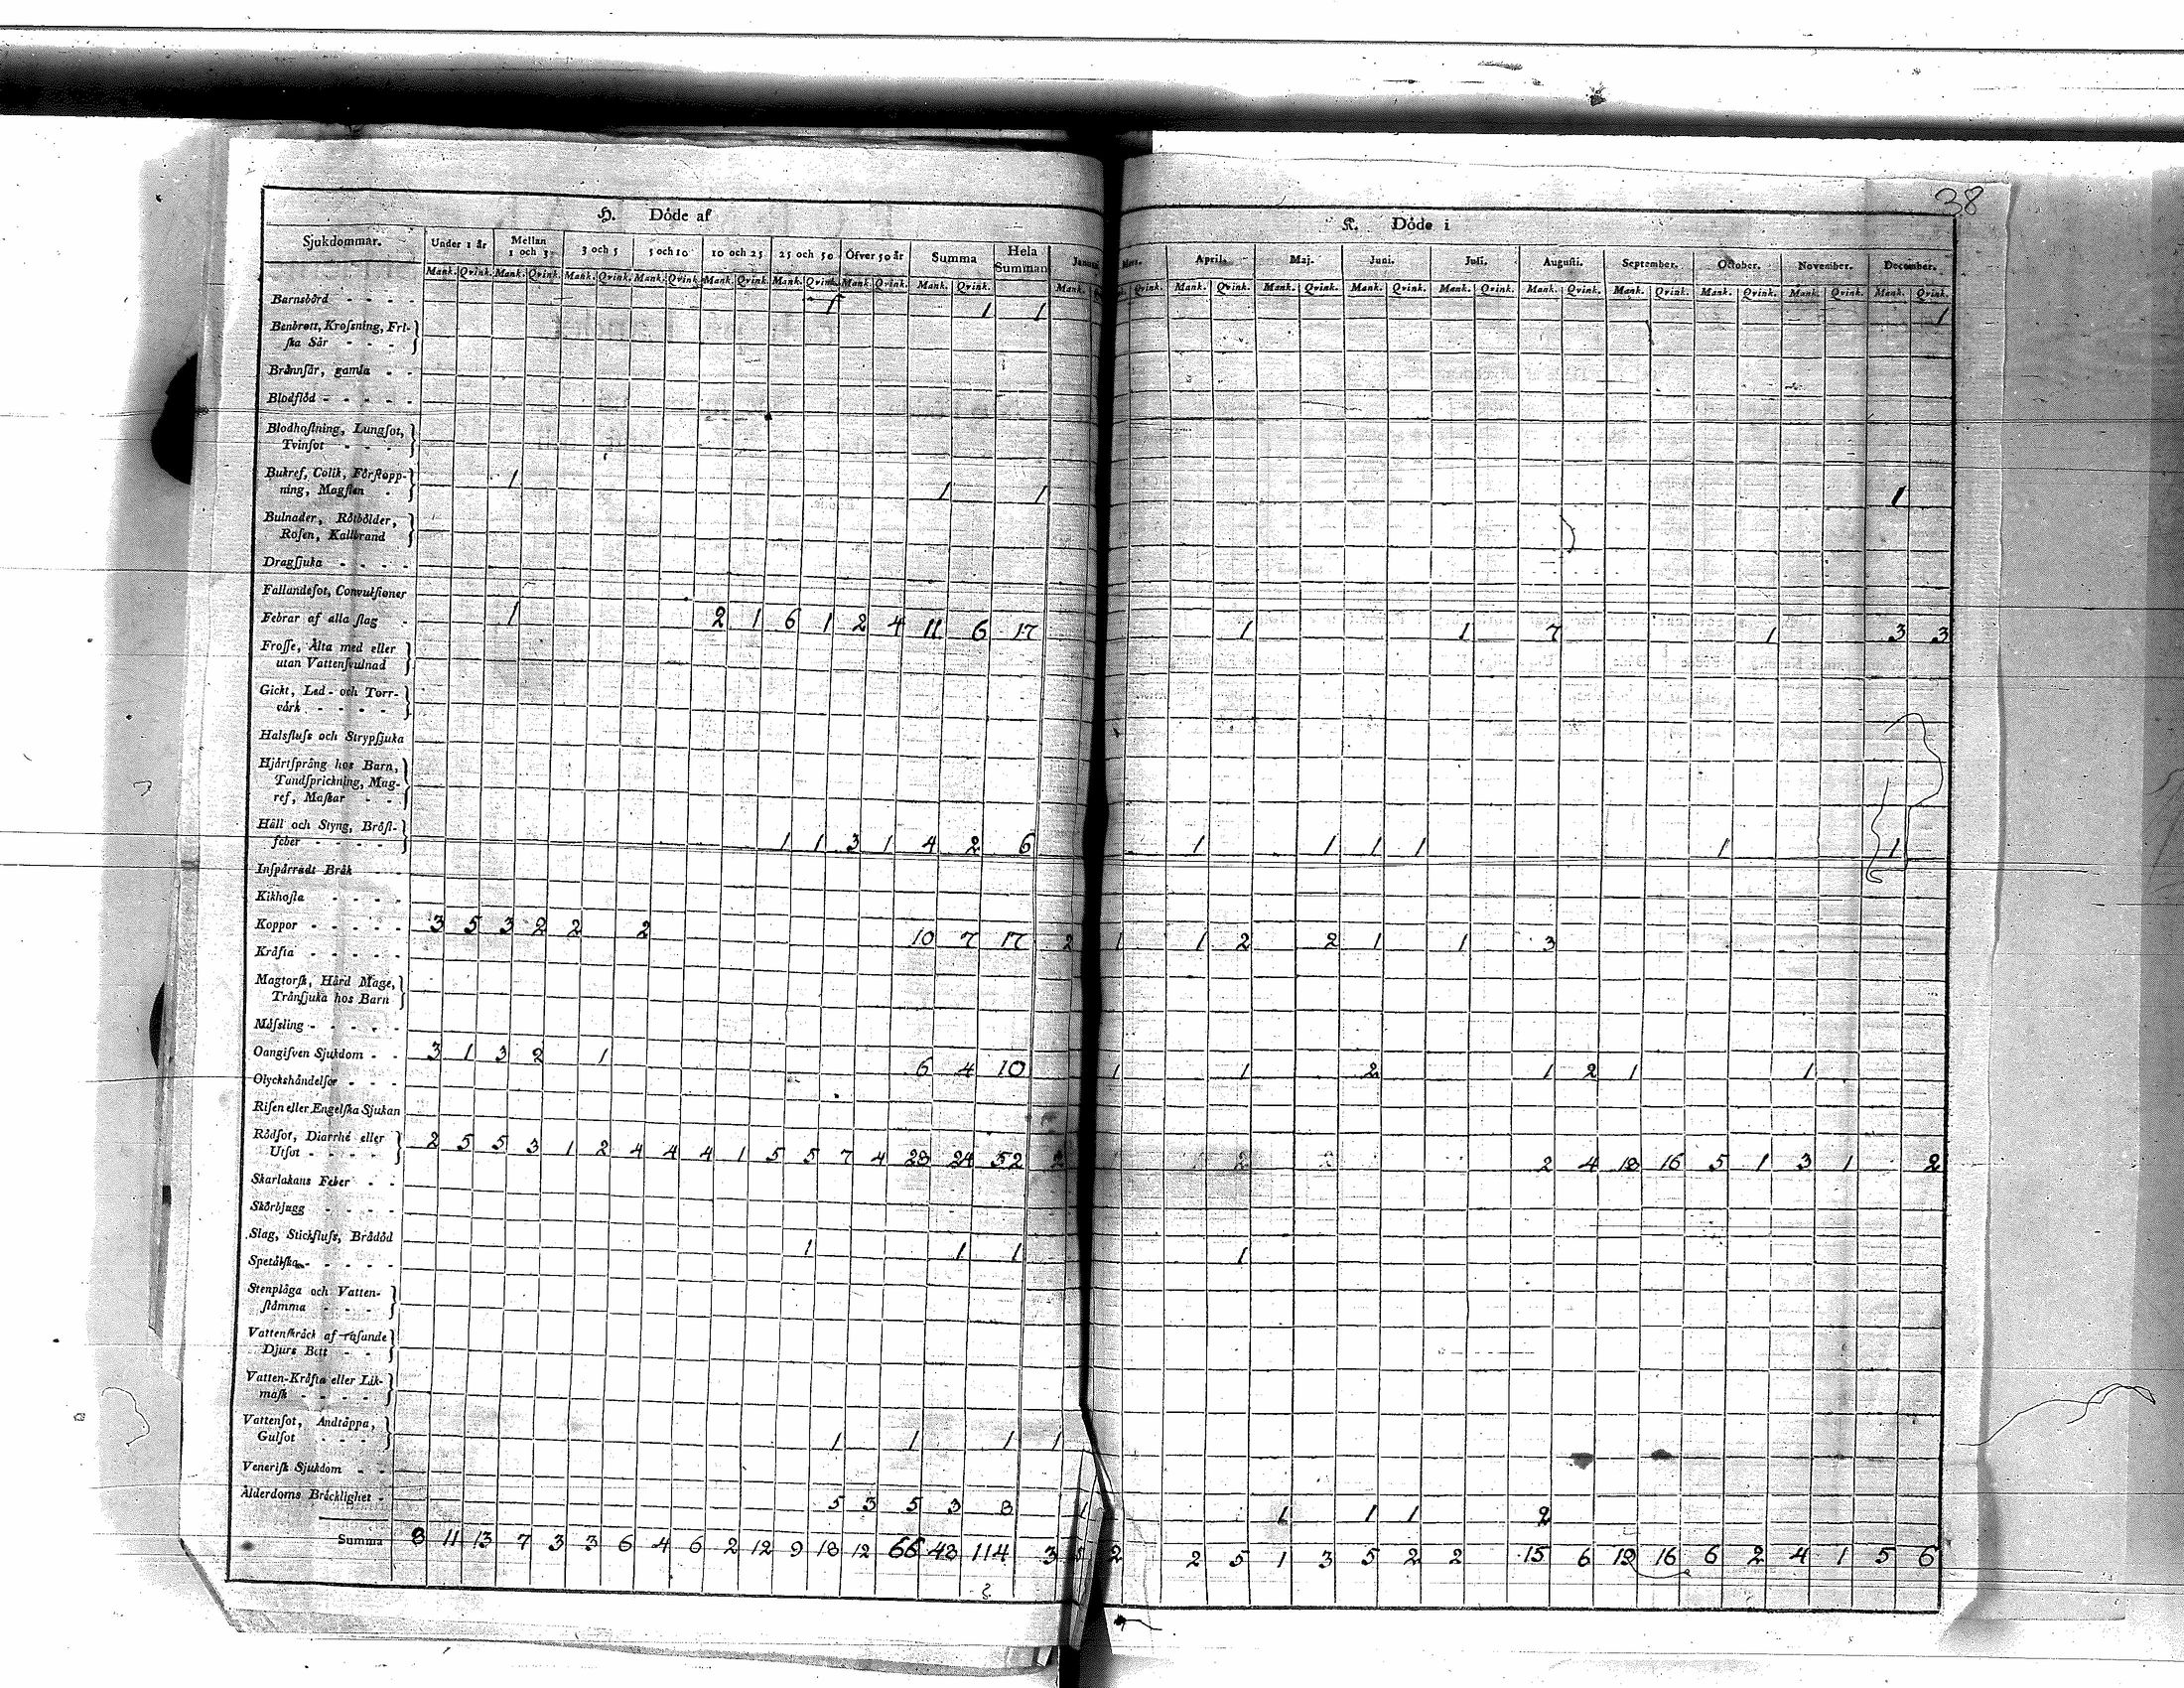 38
H. Döde af
K. Döde i
Sjukdommar. Under 1 år Mellan 1 och 3 3 och 5 5 och 10 10 och 25 25 och 50 Öfver 50 år Summa Hela Summan
Mars. April. Maj. Juni. Juli. Augusti. September. October. November. December.
Mank. Qvink. Mank. Qvink. Mank. Qvink. Mank. Qvink. Mank. Qvink. Mank. Qvink. Mank. Qvink. Mank. Qvink. Mank.
Qvink. Mank. Qvink. Mank. Qvink. Mank. Qvink. Mank. Qvink. Mank. Qvink. Mank. Qvink. Mank. Qvink. Mank. Qvink. Mank. Qvink.
Barnsbörd - - - - 1 1 1 1
Benbrott, Kroſsning, Fri-
ſka Sår - - -
Brännſår, gamla - -
Blodflöd - - - - -
Blodhoſtning, Lungſot,
Tvinſot - - -
Bukref, Colik, Förſtopp-
ning, Magſten - 1 1 1 1
Bulnader, Rötbölder,
Roſen, Kallbrand
Dragſjuka - - - -
Fallandeſot, Convulſioner
Febrar af alla ſlag - 1 2 1 6 1 2 4 11 6 17 1 1 7 1 3 3
Froſſe, Älta med eller
utan Vattenſvulnad
Gickt, Led- och Torr-
värk - - - -
Halsfluſs och Strypſjuka
Hjärtſprång hos Barn,
Tandſprickning, Mag-
ref, Maſkar - -
Håll och Styng, Bröſt-
feber - - - - 1 1 3 1 4 2 6 1 1 1 1 1 1
Inſpärradt Bråk
Kikhoſta - - - -
Koppor - - - - - 3 5 3 2 2 2 10 7 17 2 1 1 2 2 1 1 3
Kräfta - - - - -
Magtorſk, Hård Mage,
Trånſjuka hos Barn
Mäſsling - - - - -
Oangifven Sjukdom - - 3 1 3 2 1 6 4 10 1 1 2 1 2 1 1
Olyckshändelſer - - -
Riſen eller Engelſka Sjukan
Rödſot, Diarrhé eller
Utſot - - - - 2 5 5 3 1 2 4 4 4 1 5 5 7 4 28 24 52 2 2 2 4 18 16 5 1 3 1 2
Skarlakans Feber - -
Skörbjugg - - - -
Slag, Stickfluſs, Bräddöd 1 1 1 1
Spetälſka - - - - -
Stenplåga och Vatten-
ſtämma - - -
Vattenſkräck af raſande
Djurs Bett - -
Vatten-Kräfta eller Lik-
maſk - - - -
Vattenſot, Andtäppa,
Gulſot - - - 1 1 1 1
Veneriſk Sjukdom - -
Ålderdoms Bräcklighet - 5 3 5 3 8 1 1 1 1 2
Summa 8 11 13 7 3 3 6 4 6 2 12 9 18 12 66 48 114 3 2 2 5 1 3 5 2 2 15 6 19 16 6 2 4 1 5 6